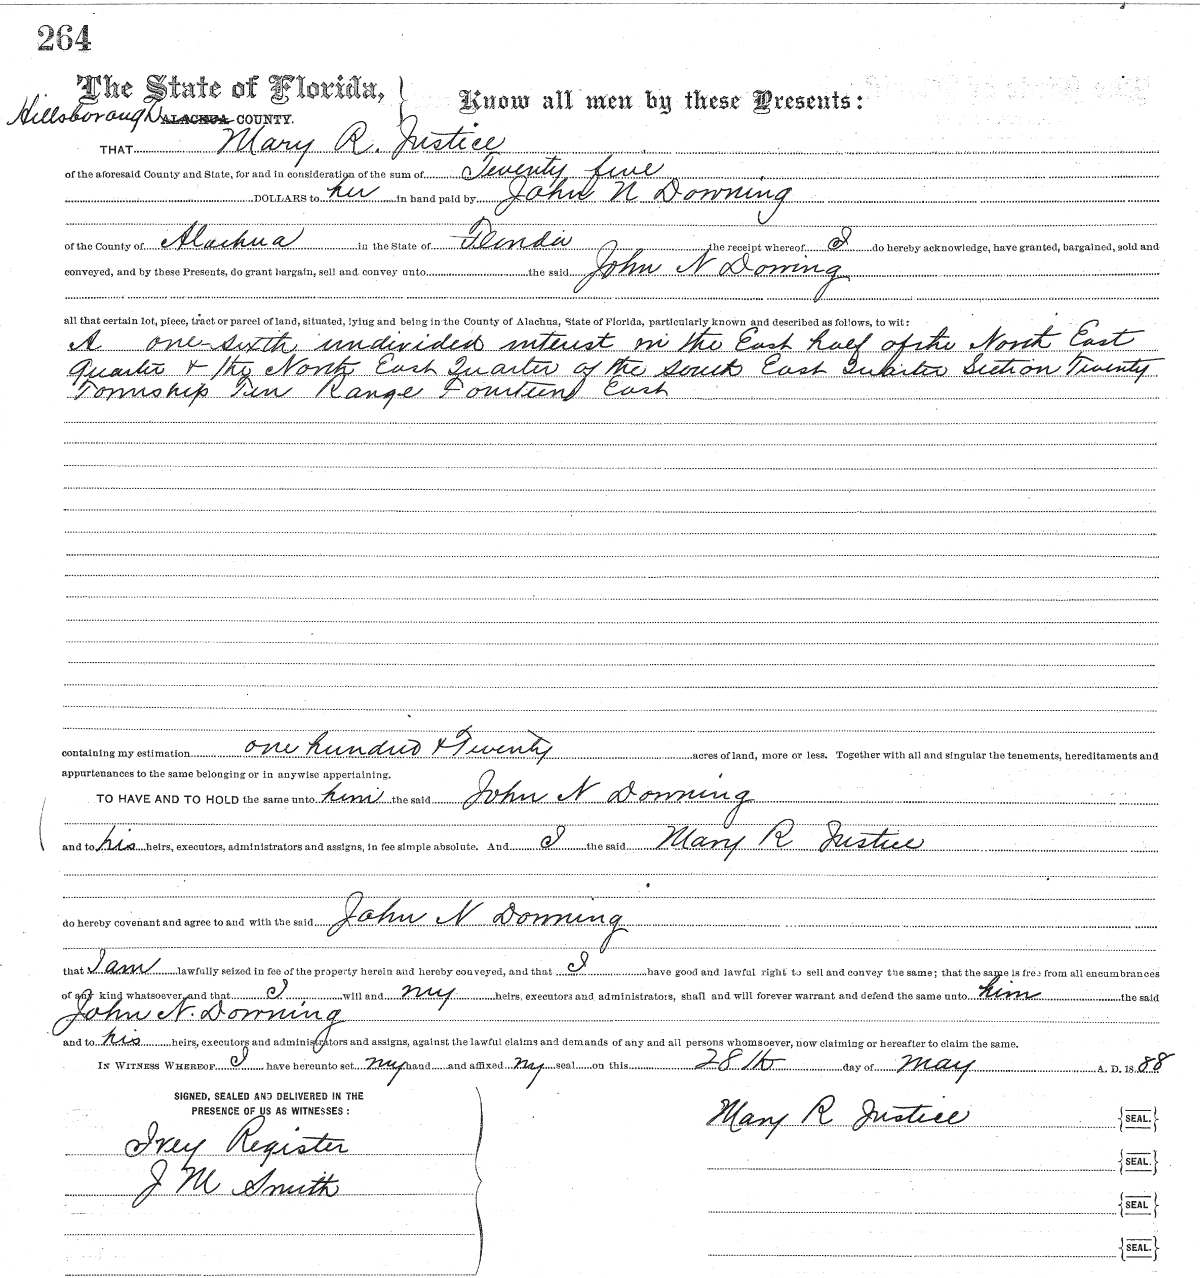 264
The State of Florida,
Know all men by these Presents:
Hillsborough ALACHUA COUNTY.
THAT Mary R. Justice
of the aforesaid County and State, for and in consideration of the sum of Twenty five
DOLLARS to her in hand paid by John N Downing
of the County of Alachua in the State of Florida the receipt whereof I do hereby acknowledge, have granted, bargained, sold and
conveyed, and by these Presents, do grant bargain, sell and convey unto the said John N Downing
all that certain lot, piece, tract or parcel of land, situated, lying and being in the County of Alachua, State of Florida, particularly known and described as follows, to wit:
A one-sixth undivided interest in the East half of the North East
Quarter & the North East Quarter of the South East Quarter Section Twenty
Township Ten Range Fourteen East
containing my estimation one hundred & Twenty acres of land, more or less. Together with all and singular the tenements, hereditaments and
appurtenances to the same belonging or in anywise appertaining.
TO HAVE AND TO HOLD the same unto him the said John N Downing
and to his heirs, executors, administrators and assigns, in fee simple absolute. And I the said Mary R Justice
do hereby covenant and agree to and with the said John N Downing
that I am lawfully seized in fee of the property herein and hereby conveyed, and that I have good and lawful right to sell and convey the same; that the same is free from all encumbrances
of any kind whatsoever, and that I will and my heirs, executors and administrators, shall and will forever warrant and defend the same unto him the said
John N. Downing
and to his heirs, executors and administrators and assigns, against the lawful claims and demands of any and all persons whomsoever, now claiming or hereafter to claim the same.
IN WITNESS WHEREOF I have hereunto set my hand and affixed my seal on this 28th day of May A. D. 1888
SIGNED, SEALED AND DELIVERED IN THE
PRESENCE OF US AS WITNESSES:
Mary R Justice SEAL.
Ivey Register
SEAL.
J M Smith
SEAL
SEAL.